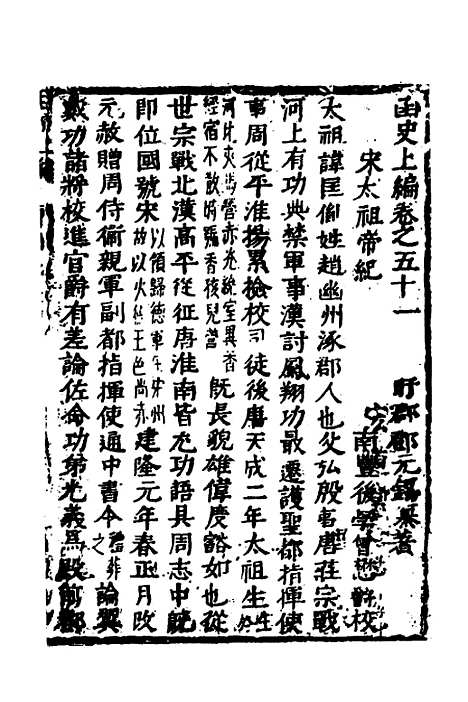 函史上編卷之五十一
盱郡鄧元錫纂著
南豐後學曾懋爵校
宋太祖帝紀
太祖諱匡胤姓趙幽州涿郡人也父弘殷事唐莊宗戰
河上有功典禁軍事漢討鳳翔功最遷護聖都指揮使
事周從平淮揚累檢校司徒後唐天成二年太祖生生
河北夾馬營赤光繞室異香
經宿不散時號香孩兒營
既長貌雄偉度豁如也從
世宗戰北漢高平從征唐淮南皆尤功語具周志中既
即位國號宋
以領歸德軍在宋州
故以火德王色尚赤
建隆元年春正月改
元赦贈周侍衛親軍副都指揮使通中書令
論翼
戴功諸將校進官爵有差論佐命功弟光義為殿前都